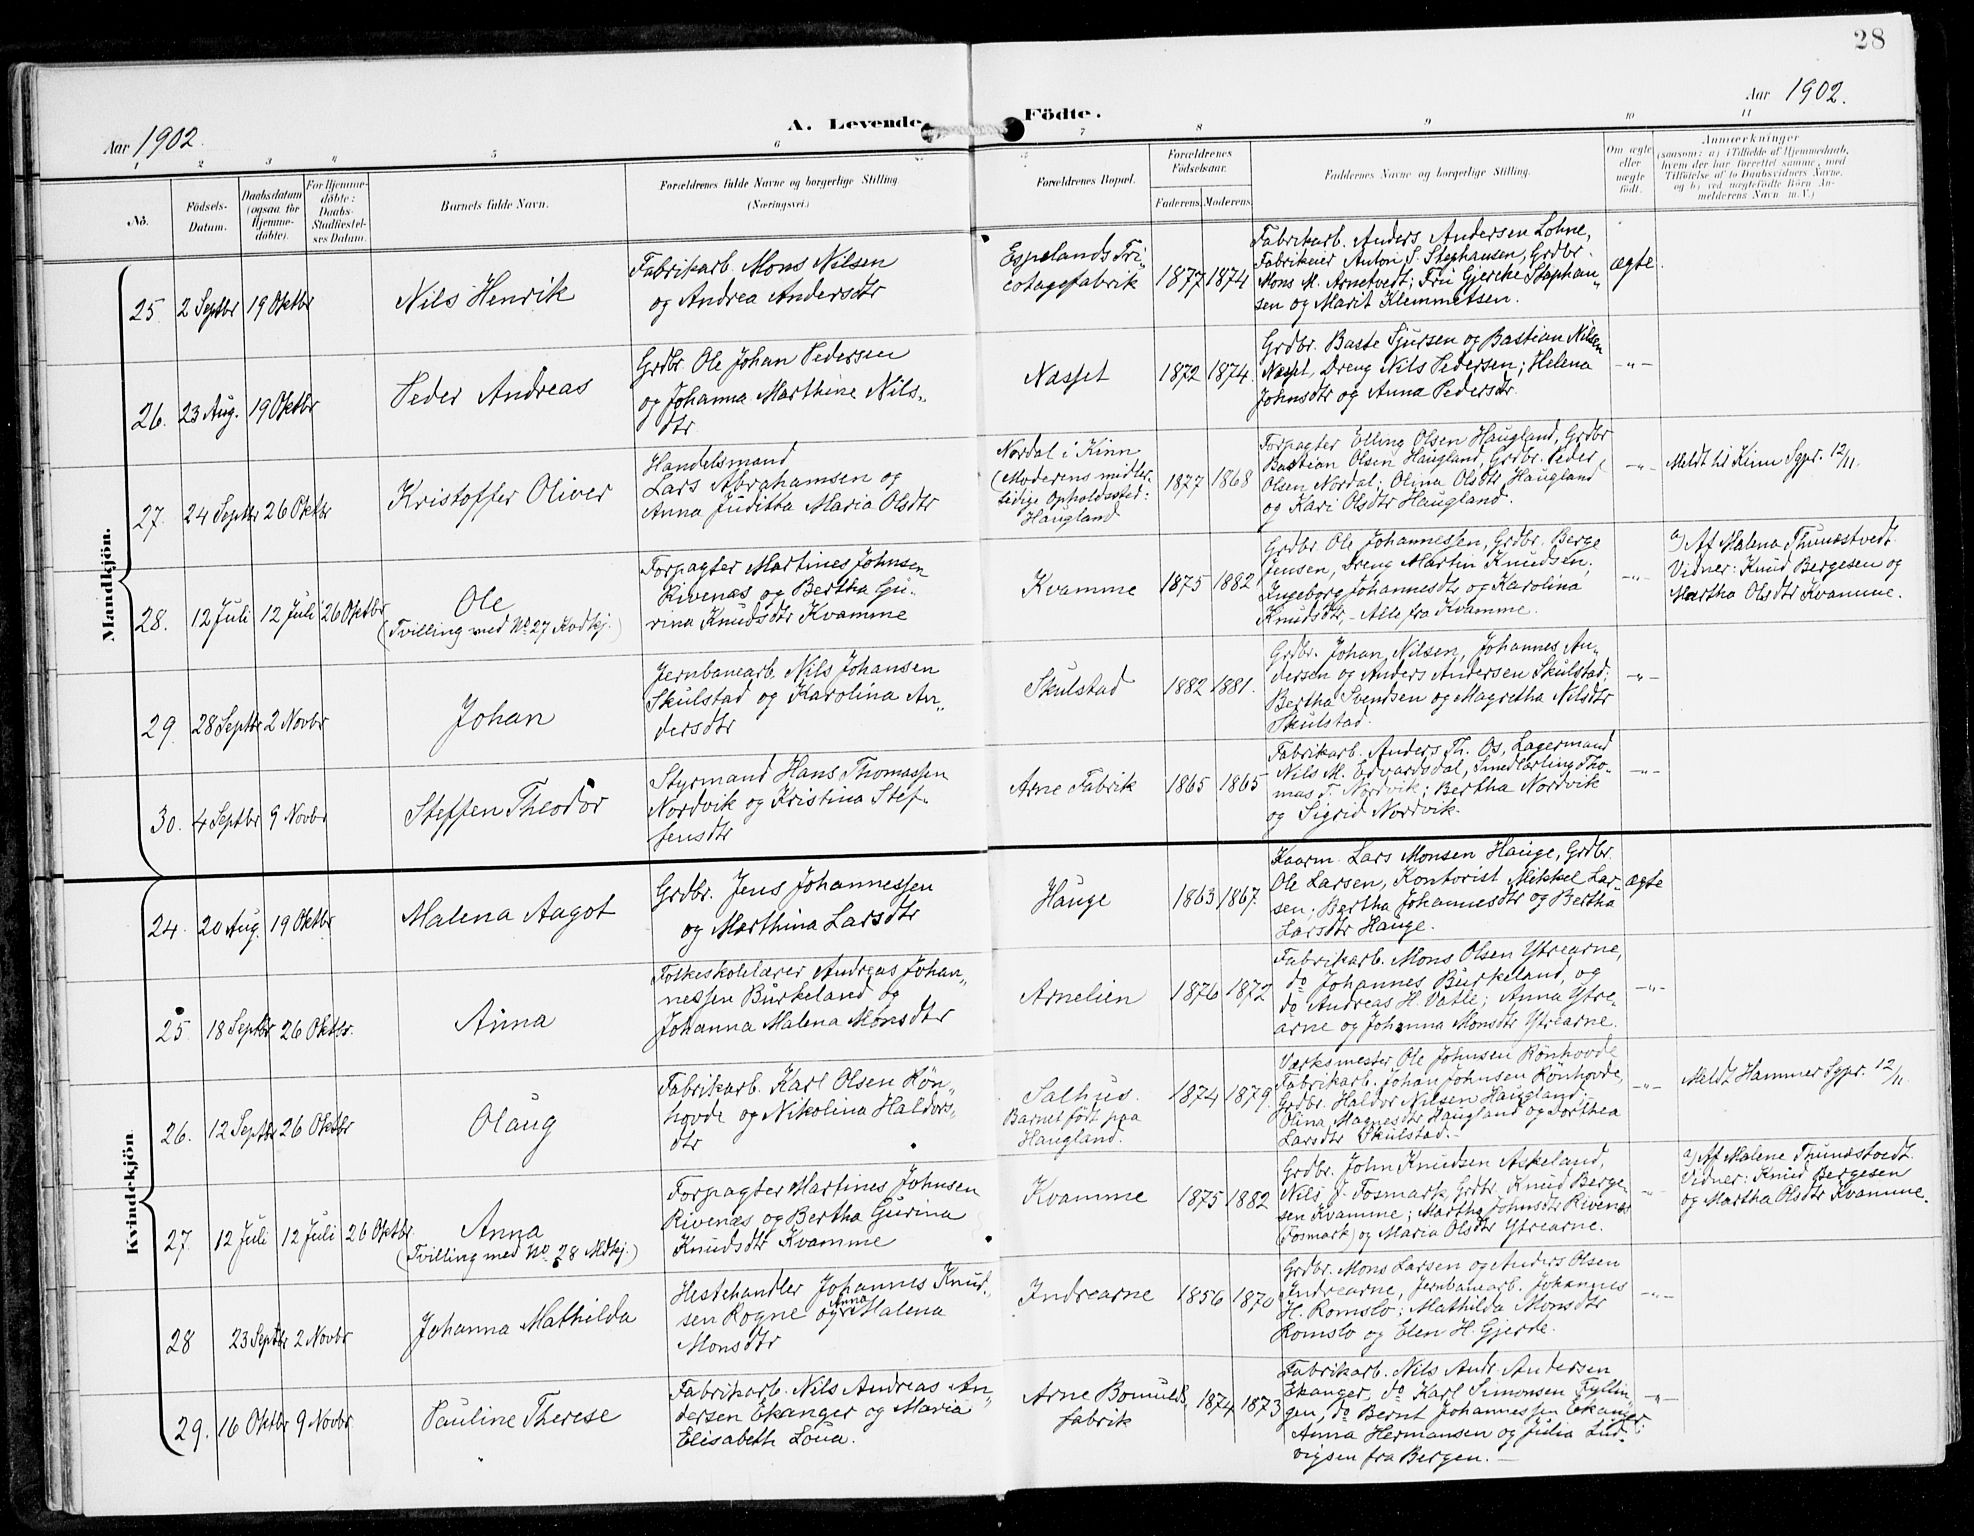 28
Aar 1902.
A. Levende Födte.
Aar 1902.
1
2
3
4
5
6
7
8
9
10
11
Nö.
Födsels-
Datum.
Daabsdatum
(ogsaa for
Hjemme-
döbte).
For Hjemme-
döbte:
Daabs-
Stadfæstel-
ses Datum.
Barnets fulde Navn.
Forældrenes fulde Navne og borgerlige Stilling
(Næringsvei.)
Forældrenes Bopæl.
Forældrenes
Födselsaar.
Faderens.
Moderens.
Faddernes Navne og borgerlige Stilling.
Om ægte
eller
uægte
födt.
Anmærkninger
(saasom: a) i Tilfælde af Hjemmedaab,
hvem der har forrettet samme, med
Tilföielse af to Daabsvidners Navne,
og b) ved uægtefödte Börn An-
melderens Navn m. V.)
Mandkjön.
25. 2 Septbr 19 Oktbr
Nils Henrik
Fabrikarb. Mons Nilsen
og Andrea Andersdtr
Espelands Tri-
cotagefabrik
1877 1874
Fabrikarb. Anders Andersen Lohne,
Fabrikeier Anton S. Stephansen, Grdbr.
Mons M. Arnetvedt; Fru Gjerche Stephan-
sen og Marit Klemmetsen.
ægte.
26. 23 Aug. 19 Oktbr
Peder Andreas
Grdbr. Ole Johan Pedersen
og Johanna Marthine Nils-
dtr
Nasset
1872 1874.
Grdbr. Baste Sjursen og Bastian Nilsen
Nasset, Dreng Nils Pedersen; Helena
Johnsdtr og Anna Pedersdtr.
-"-
27. 24 Septbr 26 Oktbr
Kristoffer Oliver
Handelsmand
Lars Abrahamsen og
Anna Juditta Maria Olsdtr
Nordal i Kinn
(Moderens midler-
tidige Opholdssted:
Haugland
1877 1868
Forpagter Elling Olsen Haugland, Grdbr
Bastian Olsen Haugland, Grdbr. Peder
Olsen Nordal; Olina Olsdtr Haugland
og Kari Olsdtr Haugland.
-"-
Meldt til Kinn Sgpr. 12/11.
28. 12 Juli 12 Juli 26 Oktbr
Ole
(Tvilling med No 27 Kvdkj.)
Forpagter Martines Johnsen
Rivenæs og Bertha Gu-
rina Knudsdtr Kvamme
Kvamme
1875 1882
Grdbr Ole Johannessen, Grdbr. Berge
Jensen, Dreng Martin Knudsen;
Ingeborg Johannesdtr og Karolina
Knudsdtr, - Alle fra Kvamme.
-"-
a) Af Malena Thunæstvedt.
Vidner: Knud Bergesen og
Martha Olsdtr Kvamme.
29. 28 Septbr 2 Novbr
Johan
Jernbanearb. Nils Johansen
Skulstad og Karolina An-
dersdtr
Skulstad
1882 1881.
Grdbr. Johan Nilsen, Johannes An-
dersen og Anders Andersen Skulstad;
Bertha Svendsen og Magretha Nilsdtr
Skulstad.
-"-
30. 4 Septbr 9 Novbr
Steffen Theodor
Styrmand Hans Thomassen
Nordvik og Kristina Stef-
fensdtr
Arne Fabrik
1865 1865
Fabrikarb. Anders Th. Os, Lagermand
Nils M. Edvardsdal, Smedlærling Tho-
mas T. Nordvik; Bertha Nordvik
og Sigrid Nordvik.
-"-
Kvindekjön
24. 20 Aug. 19 Oktbr
Malena Aagot
Grdbr. Jens Johannessen
og Marthina Larsdtr
Hauge
1863 1867.
Kaarm. Lars Monsen Hauge, Grdbr.
Ole Larsen, Kontorist Mikkel Lar-
sen; Bertha Johannesdtr og Bertha
Larsdtr Hauge.
ægte
25 18 Septbr 26 Oktbr.
Anna
Folkeskolelærer Andreas Johan-
nessen Burkeland og
Johanna Malena Monsdtr
Arnelien
1876 1872
Fabrikarb. Mons Olsen Ytrearne,
do Johannes Burkeland, og
do Andreas H. Vatle; Anna Ytre-
arne og Johanna Monsdtr Ytrearne.
-"-
26. 12 Septbr 26 Oktbr
Olaug
Fabrikarb. Karl Olsen Rön-
hovde og Nikolina Haldors-
dtr
Salhus.
Barnet födt paa
Haugland.
1874 1879.
Værksmester Ole Johnsen Rönhovde
Fabrikarb. Johan Johnsen Rönhovde,
Grdbr. Haldor Nilsen Haugland;
Olina Magnesdtr Haugland og Dorthea
Larsdtr Skulstad.-
-"-
Meldt Hammer Sgpr. 12/11.
27. 12 Juli 12 Juli 26 Oktbr
Anna
(Tvilling med No 28 Mdkj.)
Forpagter Martines Johnsen
Rivenæs og Bertha Gurina
Knudsdtr Kvamme
Kvamme
1875 1882
Grdbr. John Knudsen Askeland,
Nils J. Fosmark, Grdbr. Knud Berge-
sen Kvamme; Martha Johnsdtr Rivenæs
(Fosmark) og Maria Olsdtr Ytrearne.
-"-
a) Af Malene Thunæstvedt.
Vidner: Knud Bergesen
og Martha Olsdtr Kvamme.
28 23 Septbr 2 Novbr
Johanna Mathilda
Hestehandler Johannes Knud-
sen Rogne og Anna Malena
Monsdtr
Indrearne
1856 1870
Grdbr. Mons Larsen og Anders Olsen
Indrearne, Jernbanearb. Johannes
H. Romslo; Mathilda Monsdtr
Romslo og Elen H. Gjerde.
-"-
29. 16 Oktbr 9 Novbr
Pauline Therese
Fabrikarb. Nils Andreas An-
dersen Ekanger og Maria
Elisabeth Loua.
Arne Bomulds-
fabrik
1874 1873
Fabrikarb. Nils Andr. Andersen
Ekanger, do Karl Simonsen Fyllin-
gen, do Bernt Johannessen Ekanger;
Anna Hermansen og Julia Lud-
vigsen fra Bergen.-
-"-